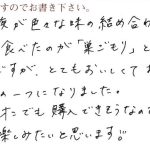 すのでお書き下さい。
友が色々な味の詰め合わ
食べたのが「巣ごもり」と
ですが、とてもおいしくてお
の一つになりました。
でも購入できそうなので
楽しみたいと思います!!